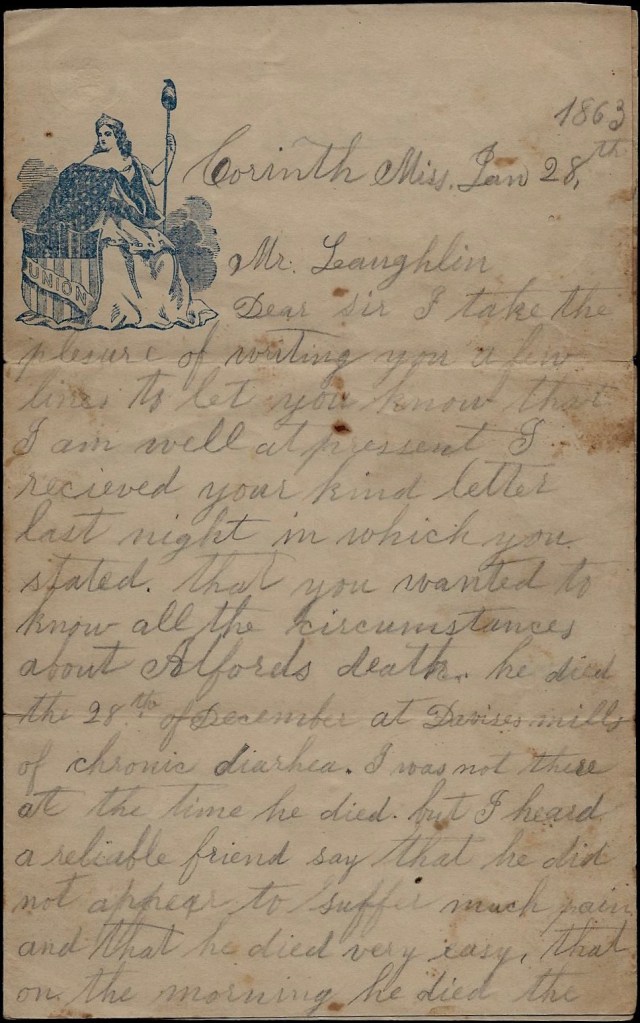 1863
Corinth Miss. Jan 28,th
UNION
Mr. Laughlin
Dear sir I take the
plesure of writing you a few
lines to let you know that
I am well at pressent I
recieved your kind letter
last night in which you
stated. that you wanted to
know all the circumstances
about Alfords death. he died
the 28th of December at Davises mills
of chronic diarhea. I was not there
at the time he died. but I heard
a reliable friend say that he did
not appear to suffer much pain
and that he died very easy, that
on the morning he died the